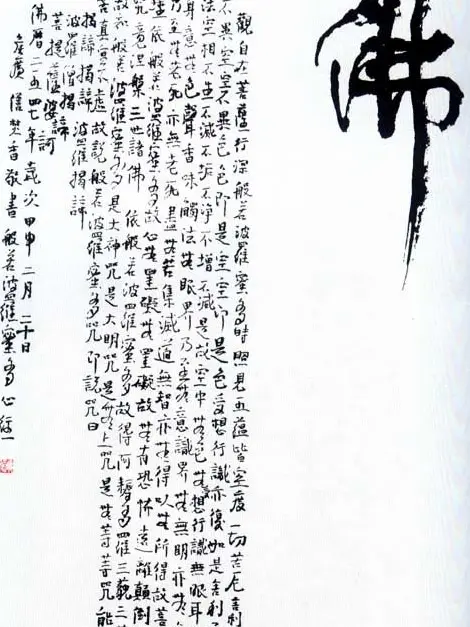 佛
觀自在菩薩行深般若波羅蜜多時照見五蘊皆空度一切苦厄舍利
不異空空不異色色即是空空即是色受想行識亦復如是舍利子
法空相不生不滅不垢不淨不增不減是故空中無色無受想行識無眼耳
身意無色聲香味觸法無眼界乃至無意識界無無明亦無
乃至無老死亦無老死盡無苦集滅道無智亦無得以無所得故菩
埵依般若波羅蜜多故心無罣礙無罣礙故無有恐怖遠離顛倒
究竟涅槃三世諸佛依般若波羅蜜多故得阿耨多羅三藐三
故知般若波羅蜜多是大神咒是大明咒是無上咒是無等等咒能
真實不虛故說般若波羅蜜多咒即說咒曰
揭諦揭諦波羅揭諦
波羅僧揭諦
菩提薩婆訶
佛曆二五四七年歲次甲申二月二十日
焚香敬書般若波羅蜜多心經一